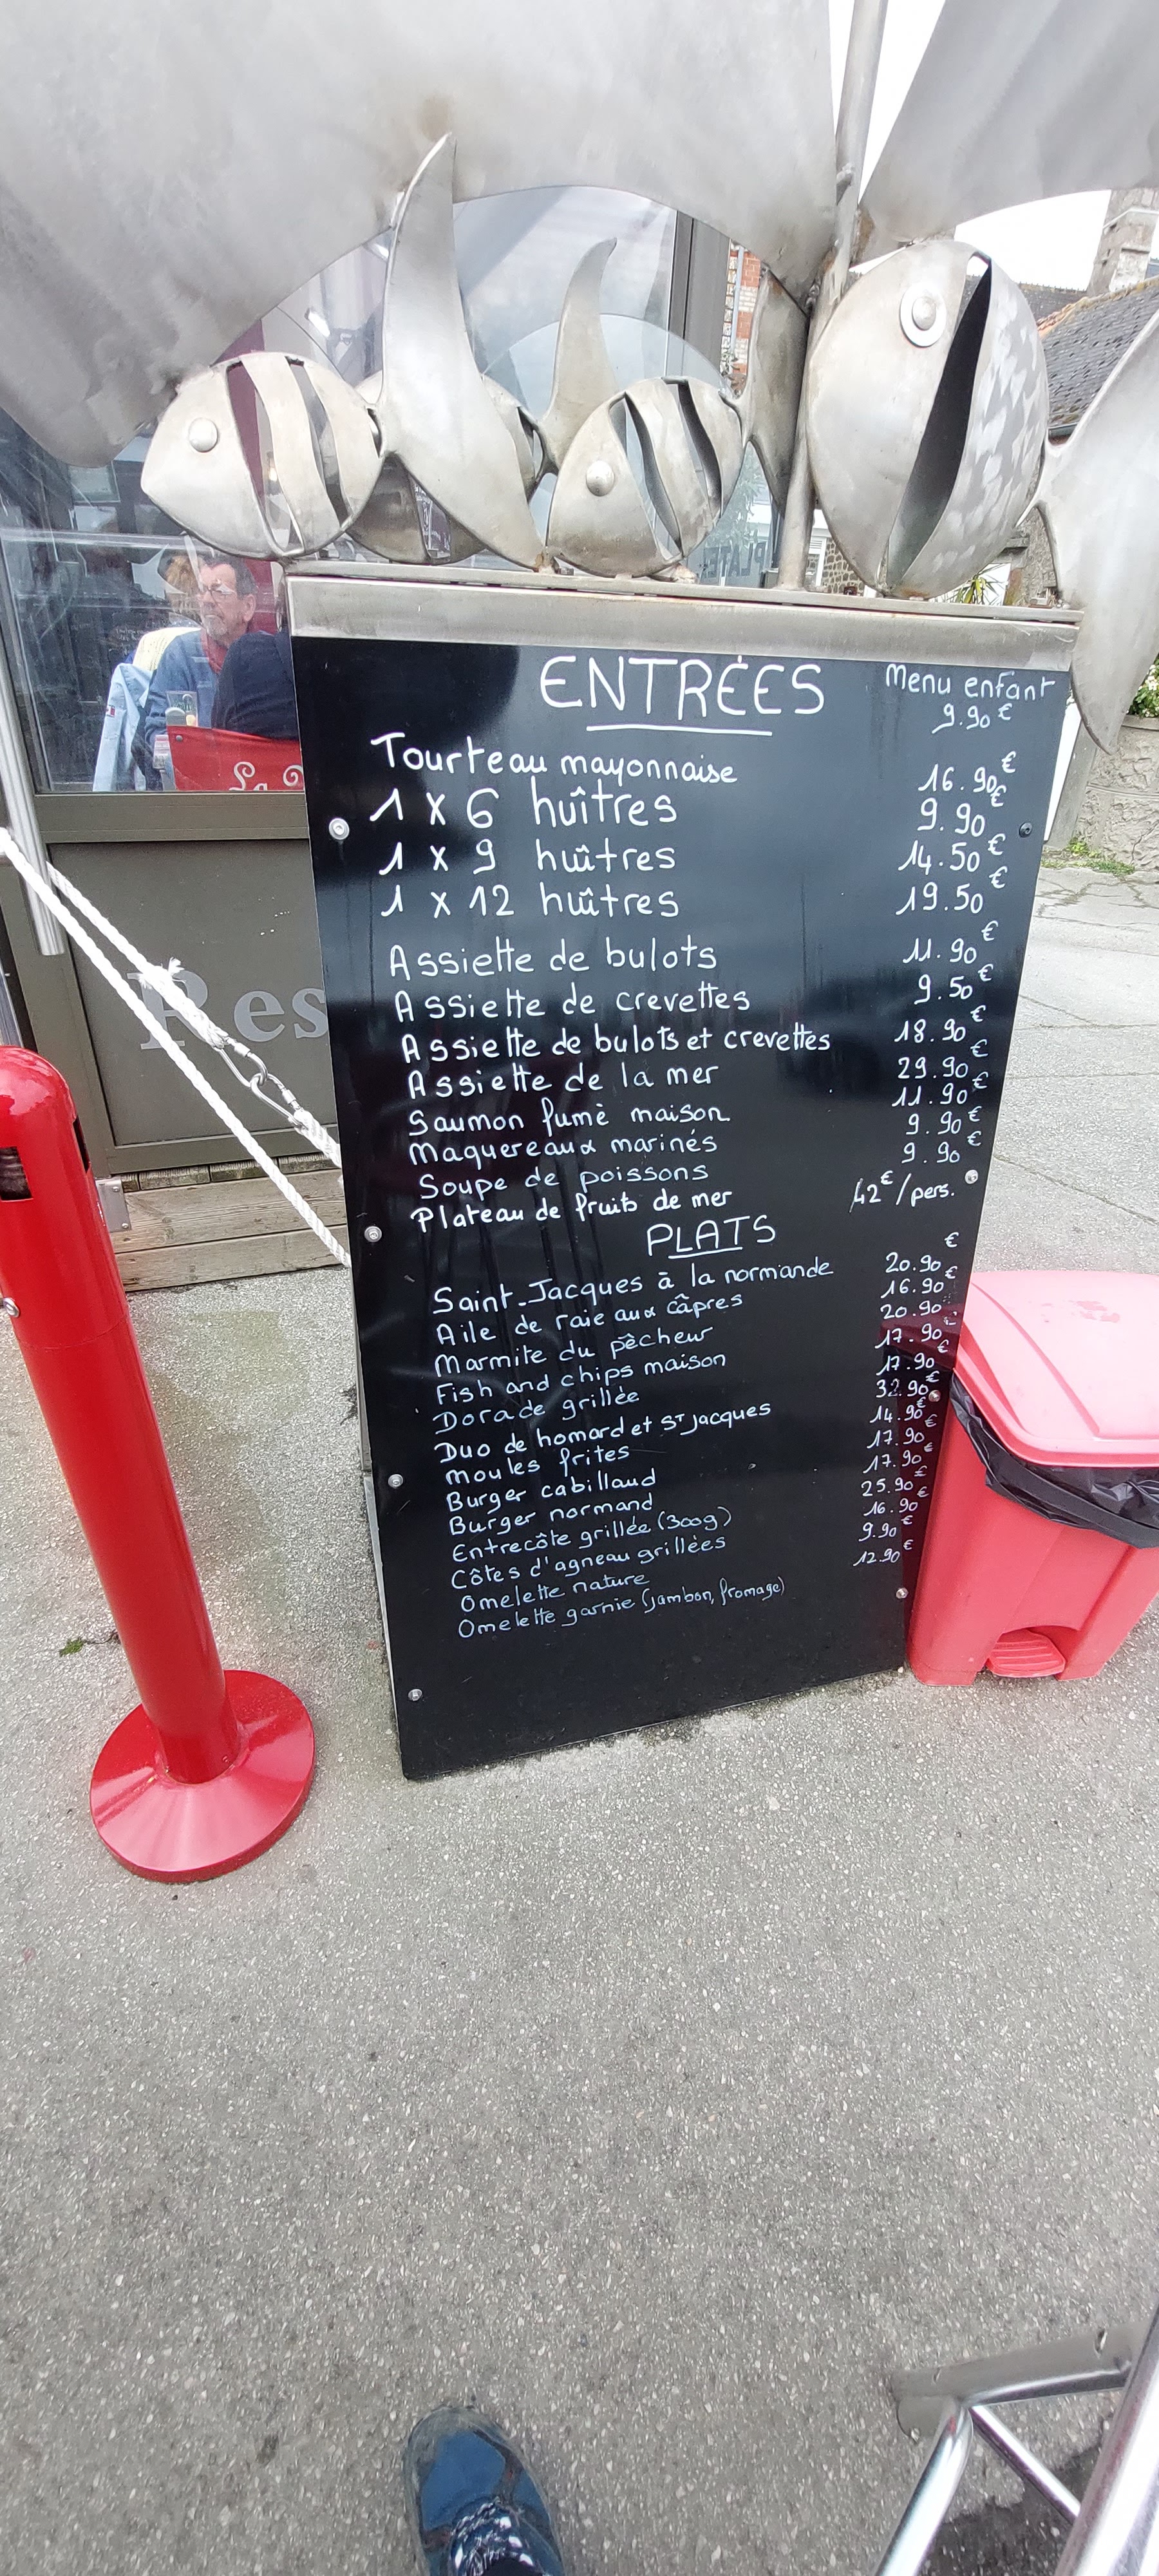 ENTRÉES
Menu enfant
9.90 €
Tourteau mayonnaise 16.90 €
1 x 6 huîtres 9.90 €
1 x 9 huîtres 14.50 €
1 x 12 huîtres 19.50 €
Assiette de bulots 11.90 €
Assiette de crevettes 9.50 €
Assiette de bulots et crevettes 18.90 €
Assiette de la mer 29.90 €
Saumon fumè maison 11.90 €
Maquereaux marinés 9.90 €
Soupe de poissons 9.90 €
Plateau de fruits de mer 42€/pers.
PLATS
Saint-Jacques à la normande 20.90 €
Aile de raie aux câpres 16.90 €
Marmite du pêcheur 20.90 €
Fish and chips maison 17.90 €
Dorade grillée 17.90 €
Duo de homard et St Jacques 32.90 €
Moules frites 14.90 €
Burger cabillaud 17.90 €
Burger normand 17.90 €
Entrecôte grillée (300g) 25.90 €
Côtes d'agneau grillées 16.90 €
Omelette nature 9.90 €
Omelette garnie (jambon, fromage) 12.90 €
La
Res